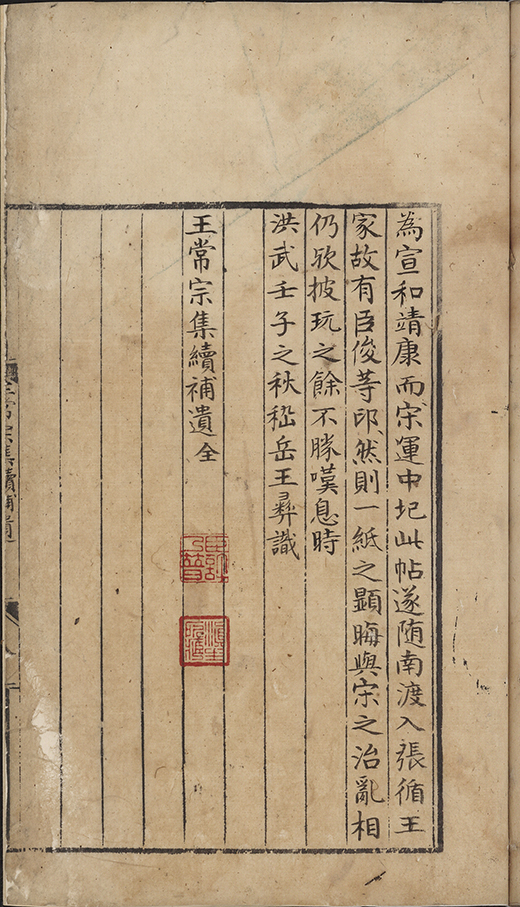 為宣和靖康而宋運中圮此帖遂随南渡入張循王
家故有臣俊等印然則一紙之顯晦與宋之治亂相
仍欤披玩之餘不勝嘆息時
洪武壬子之秋嵇岳王彞識
王常宗集續補遺全
臣許乃普
滇生
常宗集續補遺